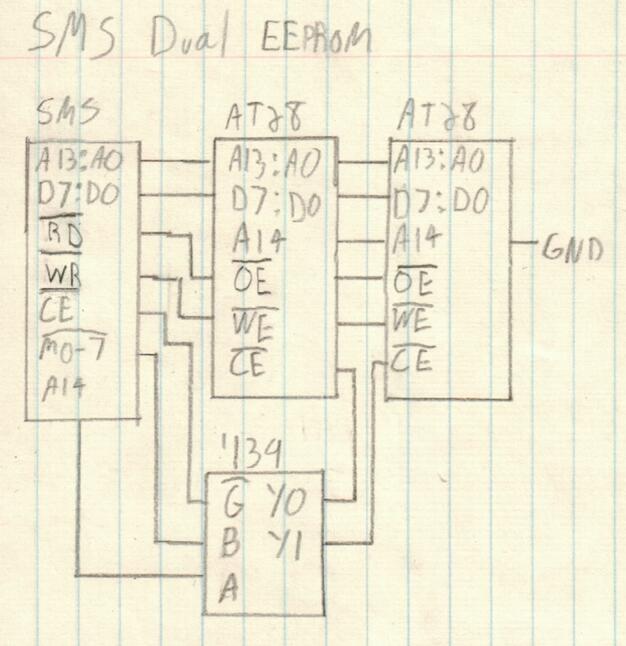 SMS Dual EEPROM
SMS
A13:A0
D7:D0
R̅D̅
W̅R̅
C̅E̅
M̅0̅-̅7̅
A14
AT28
A13:A0
D7:D0
A14
O̅E̅
W̅E̅
C̅E̅
AT28
A13:A0
D7:D0
A14
O̅E̅
W̅E̅
C̅E̅
GND
'139
G̅ Y0
B Y1
A